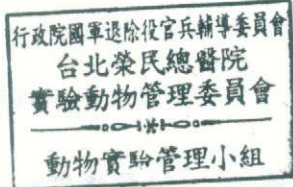 行政院國軍退除役官兵輔導委員會
台北榮民總醫院
實驗動物管理委員會
動物實驗管理小組